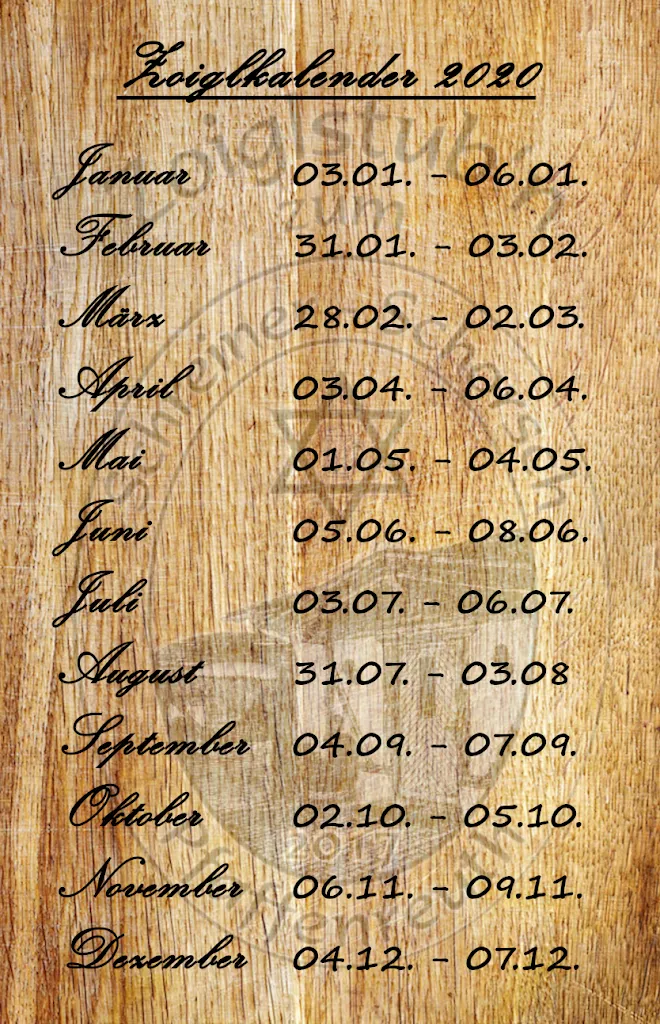 Zoiglkalender 2020
Zoiglstub'n
zum
Schreiner Schorsch
Januar 03.01. - 06.01.
Februar 31.01. - 03.02.
März 28.02. - 02.03.
April 03.04. - 06.04.
Mai 01.05. - 04.05.
Juni 05.06. - 08.06.
Juli 03.07. - 06.07.
August 31.07. - 03.08
September 04.09. - 07.09.
Oktober 02.10. - 05.10.
November 06.11. - 09.11.
Dezember 04.12. - 07.12.
2017